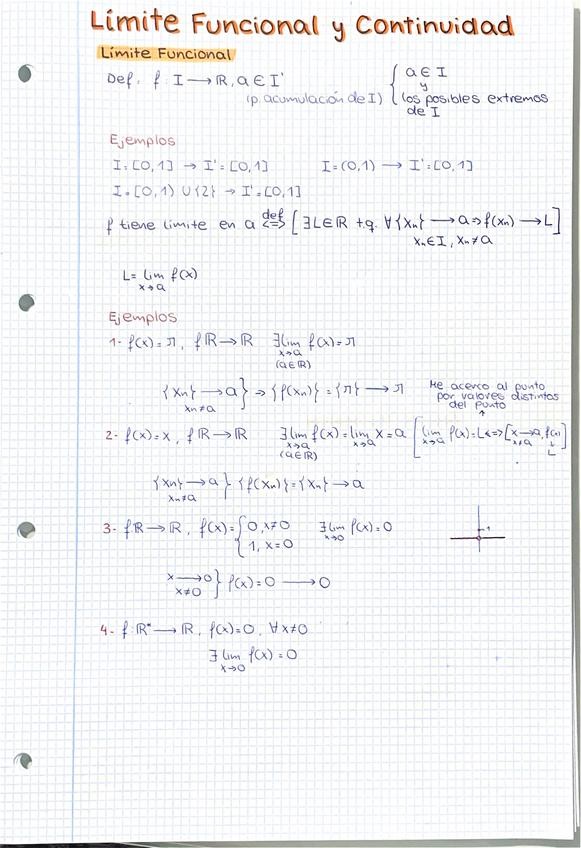 Límite Funcional y Continuidad
Límite Funcional
Def. f: I → ℝ, a ∈ I' { a ∈ I
(p. acumulación de I) y
los posibles extremos
de I
Ejemplos
I: [0,1] → I' = [0,1] I = (0,1) → I' = [0,1]
I = [0,1) ∪ {2} → I' = [0,1]
f tiene límite en a def <=> [∃ L ∈ ℝ t.q. ∀{xₙ} → a => f(xₙ) → L]
xₙ ∈ I, xₙ ≠ a
L = lim f(x)
x→a
Ejemplos
1- f(x) = π, f: ℝ → ℝ ∃ lim f(x) = π
x→a
(a ∈ ℝ)
{xₙ} → a } => {f(xₙ)} = {π} → π Me acerco al punto
xₙ ≠ a por valores distintos
del punto
2- f(x) = x, f: ℝ → ℝ ∃ lim f(x) = lim x = a [lim f(x) = L <=> [x → a, f(x)
x→a x→a x→a x≠a ↓
(a ∈ ℝ) L
{xₙ} → a } {f(xₙ)} = {xₙ} → a
xₙ ≠ a
3- f: ℝ → ℝ, f(x) = { 0, x ≠ 0 ∃ lim f(x) = 0 1
1, x = 0 x→0
x → 0 } f(x) = 0 → 0
x ≠ 0
4- f: ℝ* → ℝ, f(x) = 0, ∀ x ≠ 0
∃ lim f(x) = 0
x→0